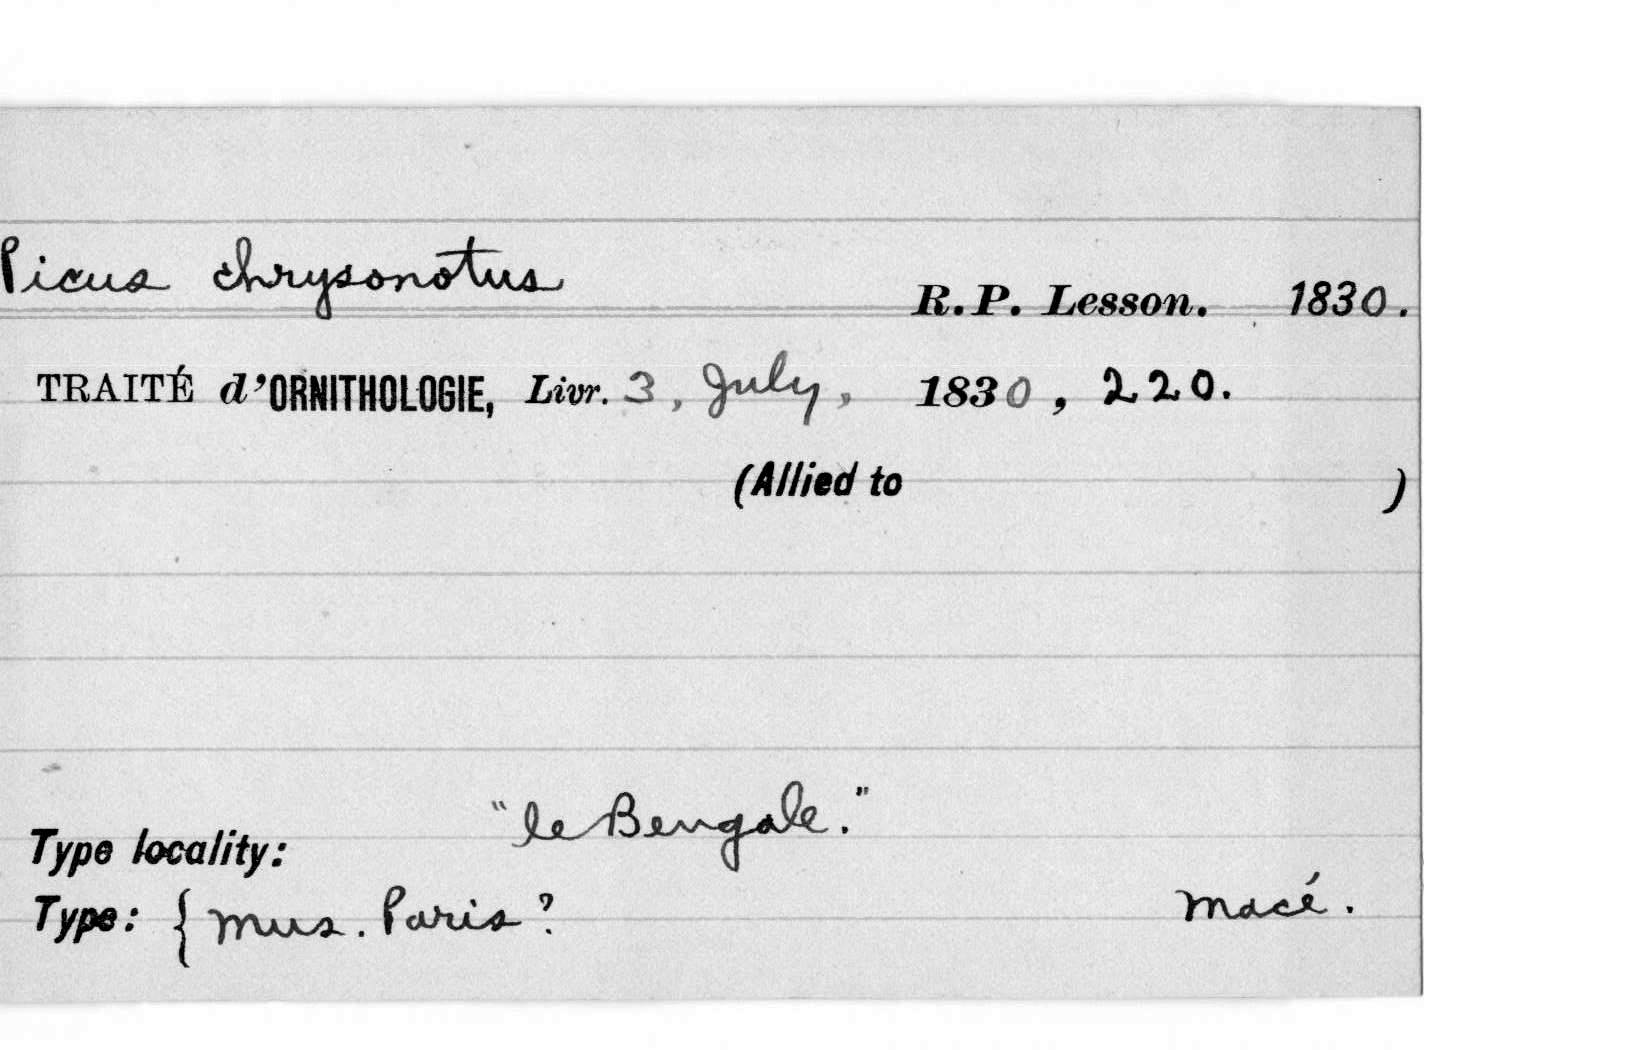 Picus chrysonotus R.P. Lesson. 1830.
TRAITÉ d'ORNITHOLOGIE, Livr. 3, July, 1830, 220.
(Allied to )
Type locality: "le Bengale."
Type: { Mus. Paris? Macé.